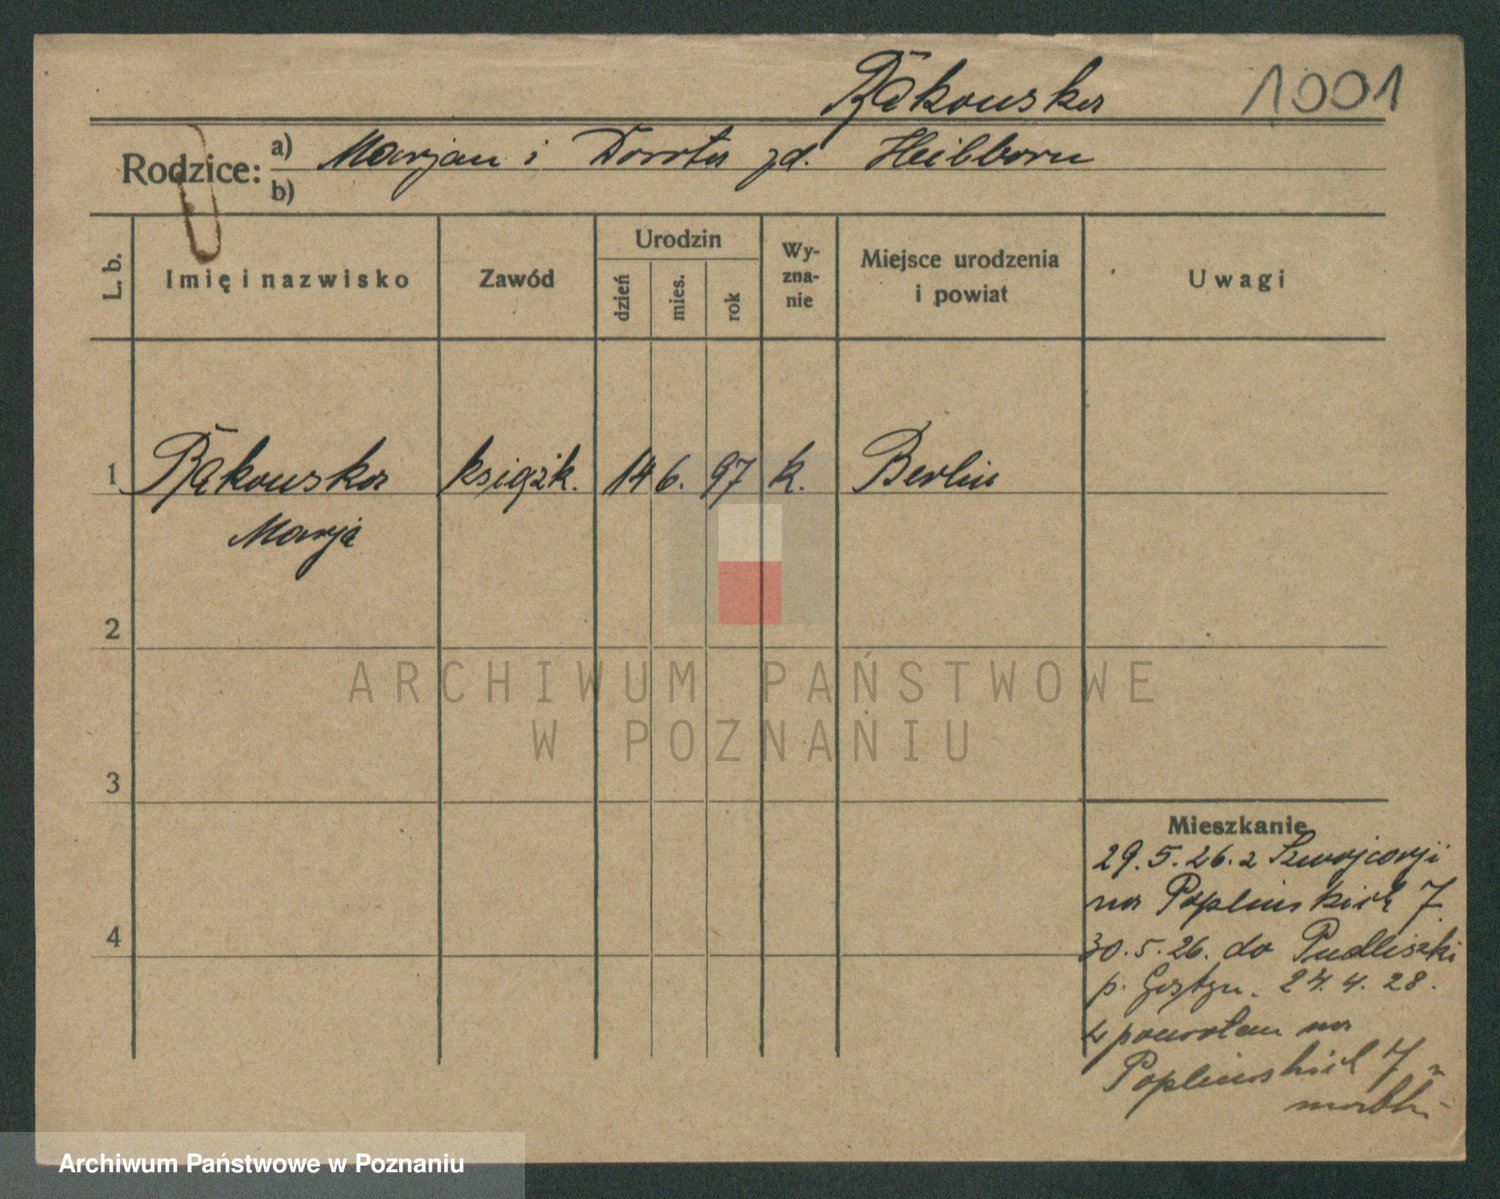 Bąkowska 1001
Rodzice: a) Marjan i Dorota zd. Heilborn
b)
L. b. Imię i nazwisko Zawód Urodzin dzień mies. rok Wy-zna-nie Miejsce urodzenia i powiat Uwagi
1 Bąkowska książk. 14 6. 97 k. Berlin
Marja
2
3
4
Mieszkanie
29.5.26. z Szwajcarji
na Poplińskich 7
30.5.26. do Pudliszki
p. Gostyń. 24.4.28.
z powrotem na
Poplińskich 7 u
matki
ARCHIWUM PAŃSTWOWE
W POZNANIU
Archiwum Państwowe w Poznaniu